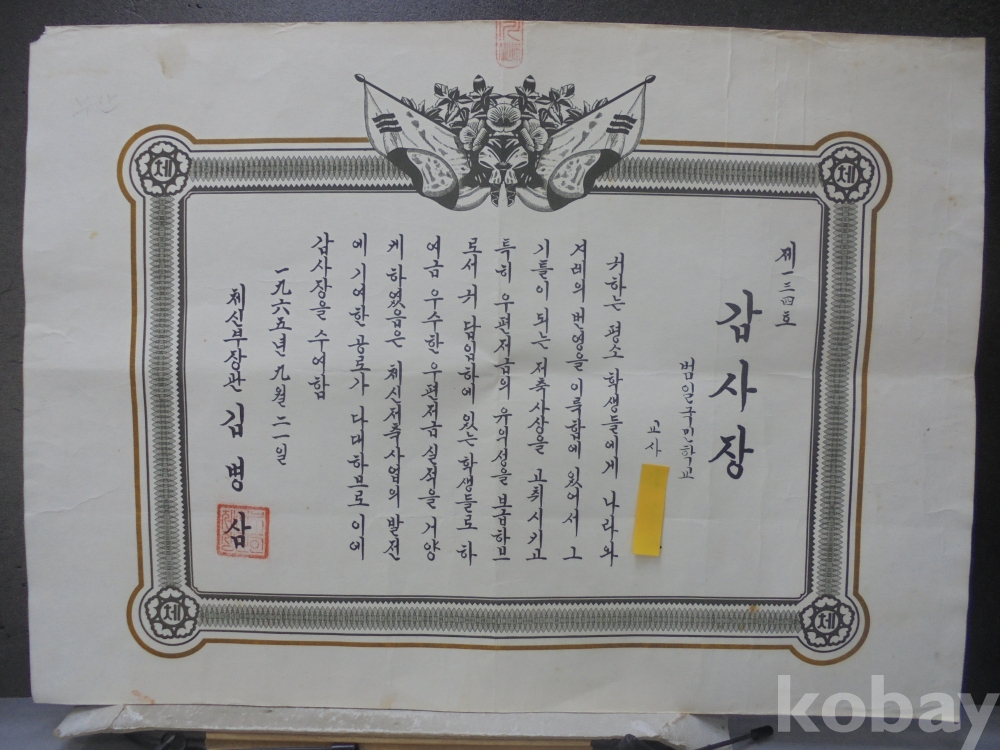 제一三四호
감사장
범일국민학교
교사
귀하는 평소 학생들에게 나라와
겨레의 번영을 이룩함에 있어서 그
기틀이 되는 저축사상을 고취시키고
특히 우편저금의 유익성을 보급하므
로서 귀 담임하에 있는 학생들로 하
여금 우수한 우편저금 실적을 거양
케 하였음은 체신저축사업의 발전
에 기여한 공로가 다대하므로 이에
감사장을 수여함
一九六五년 九월 二一일
체신부장관 김병삼
체
체
체
체
kobay